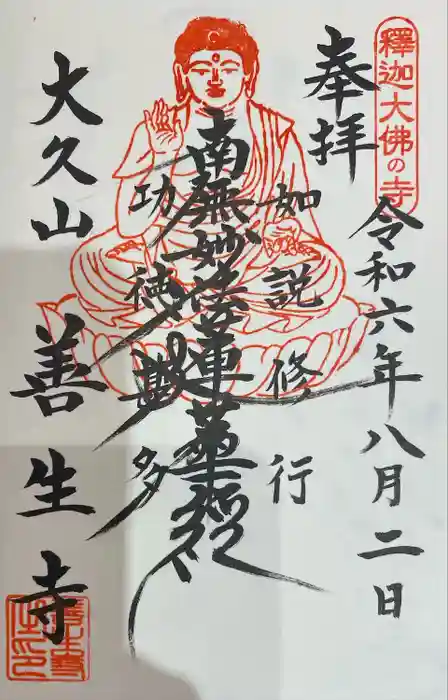 釋迦大佛の寺
奉拝
令和六年八月二日
如説修行
南無妙法蓮華経
功徳甚多
大久山
善生寺
善生寺